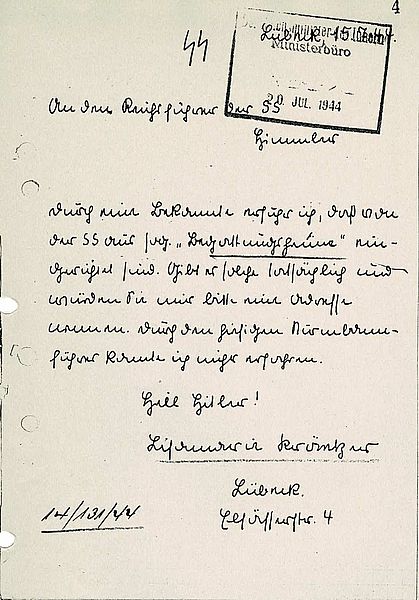 4
Lübeck, 15.7.44.
Ministerbüro
20. JUL. 1944
An den Reichsführer der SS
Himmler
Durch eine Bekannte erfuhr ich, daß von
der SS aus sog. „Begattungsheime“ ein-
gerichtet sind. Gibt es solche tatsächlich und
würden Sie mir bitte eine Adresse
nennen. Durch den hiesigen Sturmbann-
führer konnte ich nichts erfahren.
Heil Hitler!
Lübeck.
Elsässerstr. 4
14/131/44